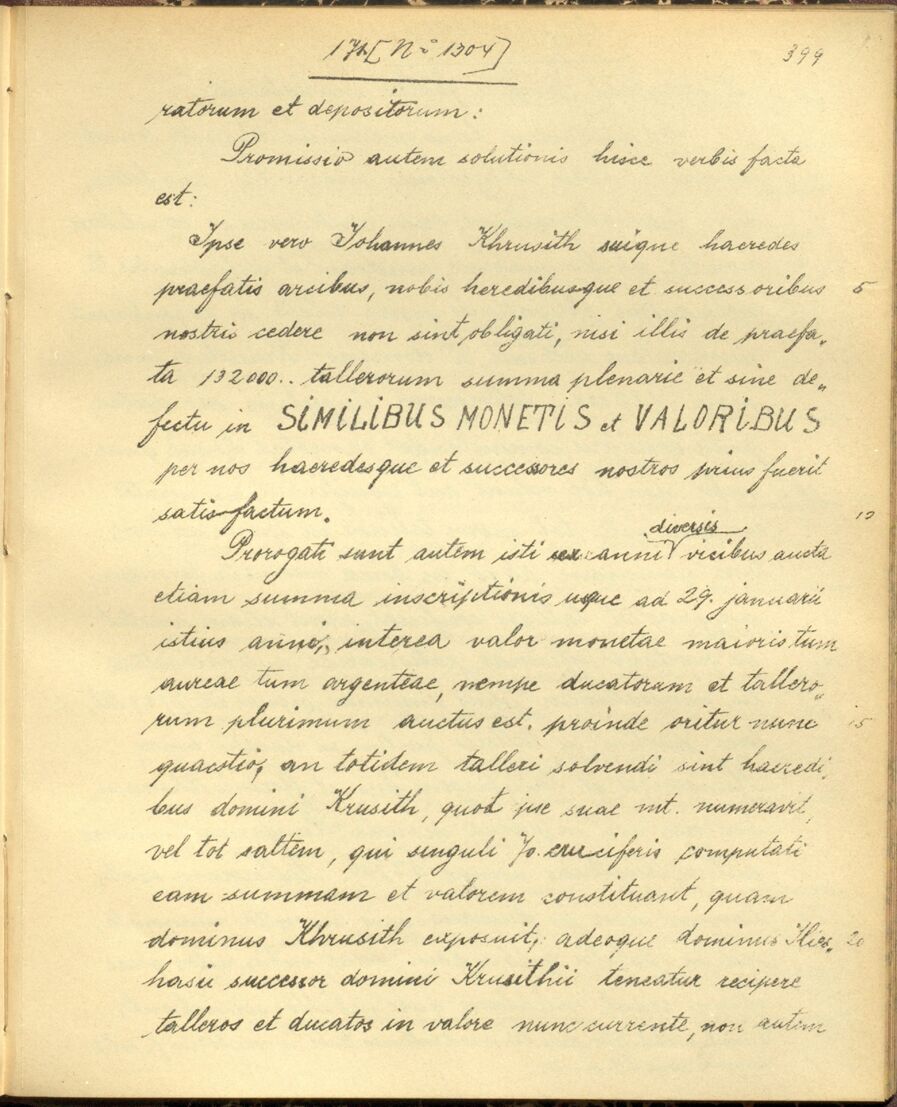 171. [Nº 1304]
399
ratorum et depositorum:
Promissio autem solutionis hisce verbis facta
est:
Ipse vero Johannes Khrusith suique haeredes
praefatis arcibus, nobis heredibusque et successoribus 5
nostris cedere non sint obligati, nisi illis de praefa„
ta 132000.. tallerorum summa plenarie et sine de„
fectu in SIMILIBUS MONETIS et VALORIBUS
per nos haeredesque et successores nostros prius fuerit
satisfactum. 10
Prorogati sunt autem isti anni diversis vicibus aucta
etiam summa inscriptionis usque ad 29. januarii
istius anni, interea valor monetae maioris tum
aureae tum argenteae, nempe ducatorum et tallero„
rum plurimum auctus est. proinde oritur nunc 15
quaestio, an totidem talleri solvendi sint haeredi,
bus domini Krusith, quot ipse suae mt. numeravit,
vel tot saltem, qui singuli 70. cruciferis computati
eam summam et valorem constituant, quam
dominus Khrusith exposuit, adeoque dominus Illies„ 20
hasii successor domini Krusithii teneatur recipere
talleros et ducatos in valore nunc currente, non autem